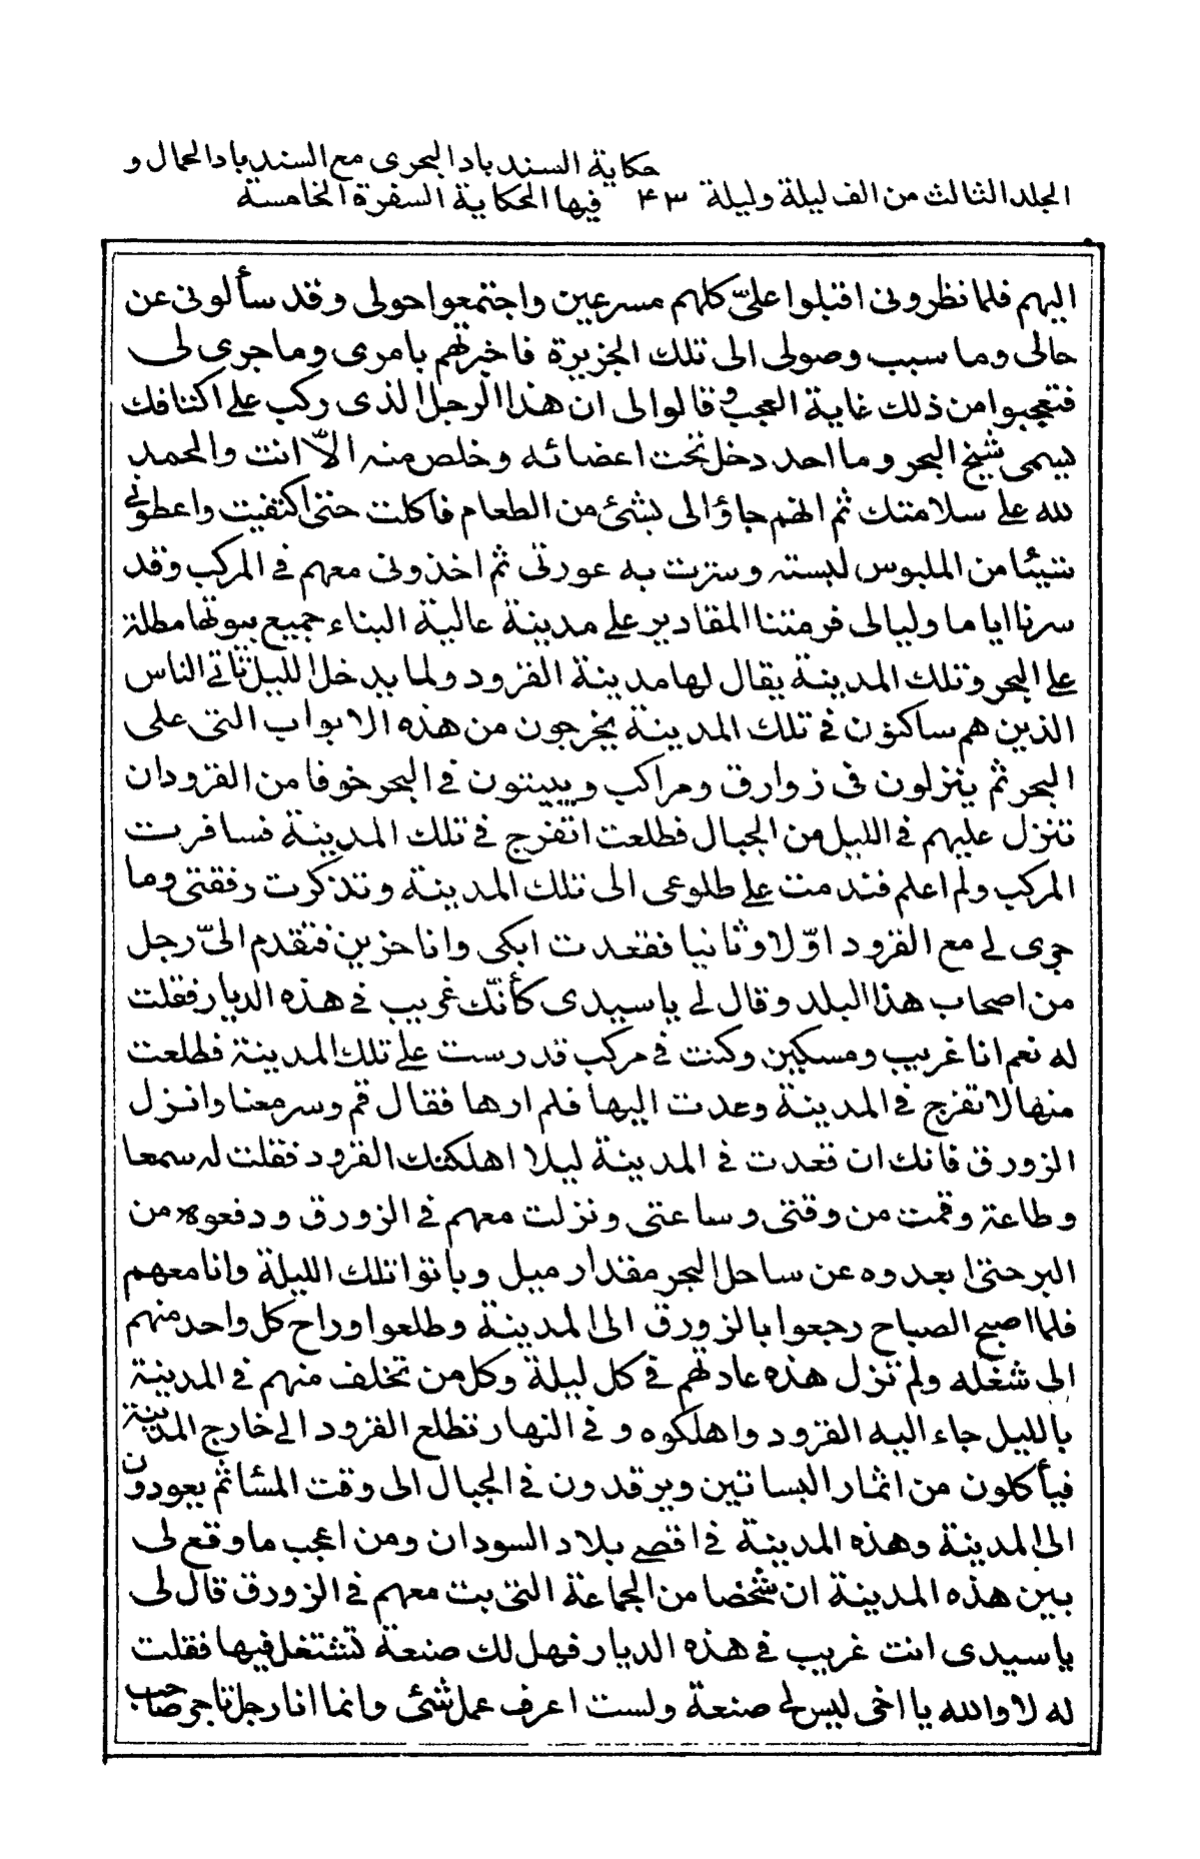 حكاية السندباد البحرى مع السندباد الحمال و
الجلد الثالث من الف ليلة وليلة ۴۳ فيها الحكاية السفرة الخامسة
اليهم فلما نظرونى اقبلوا علىّ كلهم مسرعين واجتمعوا حولى وقد سألونى عن
حالى وما سبب وصولى الى تلك الجزيرة فاخبرتهم بامرى وما جرى لى
فتعجبوا من ذلك غاية العجب وقالوا لى ان هذا الرجل الذى ركب على اكتافك
يسمى شيخ البحر وما احد دخل تحت اعضائه وخلص منه الاّ انت والحمد
لله على سلامتك ثم انهم جاؤا لى بشئ من الطعام فاكلت حتى اكتفيت واعطونى
شيئا من الملبوس لبسته وسترت به عورتى ثم اخذونى معهم فى المركب وقد
سرنا اياما وليالى فرمتنا المقادير على مدينة عالية البناء جميع بيوتها مطلة
على البحر وتلك المدينة يقال لها مدينة القرود ولما يدخل الليل تاتى الناس
الذين هم ساكنون فى تلك المدينة يخرجون من هذه الابواب التى على
البحر ثم ينزلون فى زوارق ومراكب ويبيتون فى البحر خوفا من القرود ان
تنزل عليهم فى الليل من الجبال فطلعت اتفرج فى تلك المدينة فسافرت
المركب ولم اعلم فندمت على طلوعى الى تلك المدينة وتذكرت رفقتى وما
جرى لى مع القرود اوّلا وثانيا فقعدت ابكى وانا حزين فتقدم الىّ رجل
من اصحاب هذا البلد وقال لى يا سيدى كأنّك غريب فى هذه الديار فقلت
له نعم انا غريب ومسكين وكنت فى مركب قد رست على تلك المدينة فطلعت
منها لاتفرج فى المدينة وعدت اليها فلم ارها فقال قم وسر معنا وانزل
الزورق فانك ان قعدت فى المدينة ليلا اهلكتك القرود فقلت له سمعا
وطاعة وقمت من وقتى وساعتى ونزلت معهم فى الزورق ودفعوه من
البر حتى ابعدوه عن ساحل البحر مقدار ميل وباتوا تلك الليلة وانا معهم
فلما اصبح الصباح رجعوا بالزورق الى المدينة وطلعوا وراح كل واحد منهم
الى شغله ولم تزل هذه عادتهم فى كل ليلة وكل من تخلف منهم فى المدينة
بالليل جاء اليه القرود واهلكوه وفى النهار تطلع القرود الى خارج المدينة
فيأكلون من اثمار البساتين ويرقدون فى الجبال الى وقت المسا ثم يعودون
الى المدينة وهذه المدينة فى اقصى بلاد السودان ومن اعجب ما وقع لى
بين هذه المدينة ان شخصا من الجماعة التى بت معهم فى الزورق قال لى
يا سيدى انت غريب فى هذه الديار فهل لك صنعة تشتغل فيها فقلت
له لا والله يا اخى ليس لى صنعة ولست اعرف عمل شئ وانما انا رجل تاجر صاحب